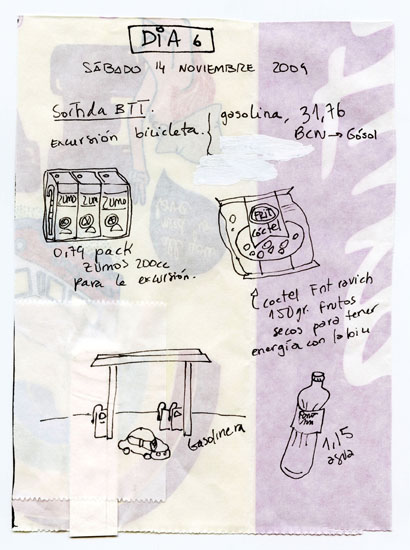 DIA 6
SÁBADO 14 NOVIEMBRE 2009
Sortida BTT.
EXCURSIÓN bicicleta.
gasolina, 31,76
BCN → Gósol
ZUMO ZUM ZUMO
0,79 pack
ZUMOS 200cc
para la excursión.
FRIT
COCTEL
Coctel Frit ravich
150gr. frutos
secos para tener
energía con la bici
Gasolinera
1,15
agua